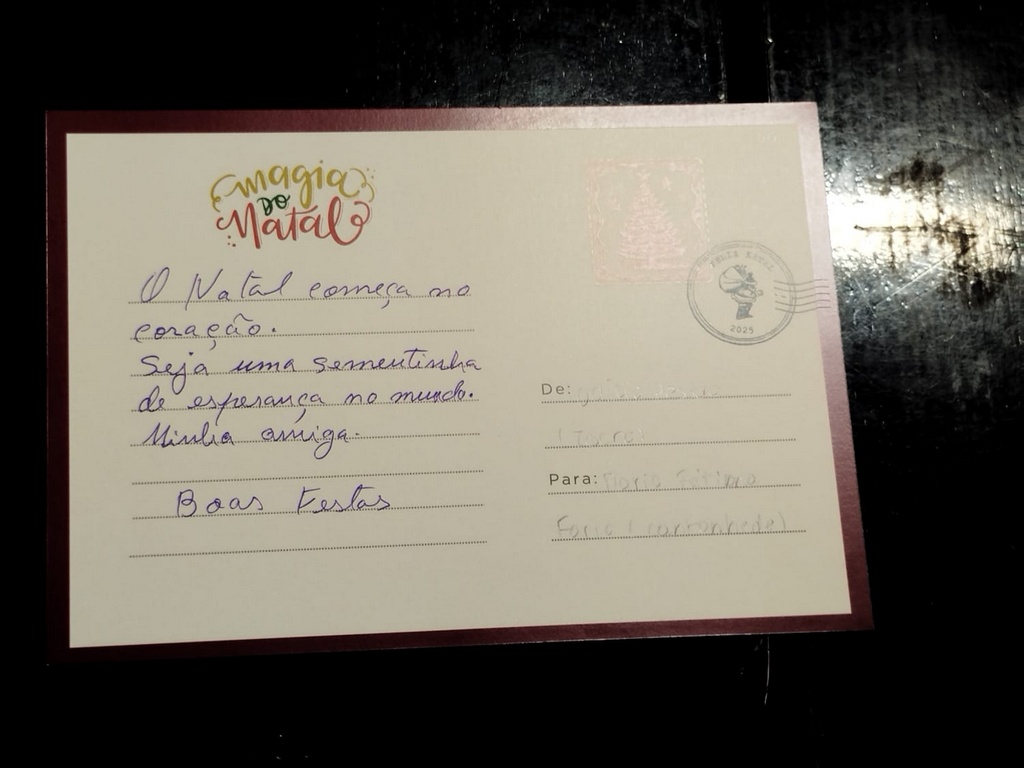 magia
DO
Natal
O Natal começa no
coração.
Seja uma sementinha
de esperança no mundo.
Minha amiga.
Boas Festas
FELIZ NATAL
2025
De:
Para: Maria Fátima
Faria (cantanhede)